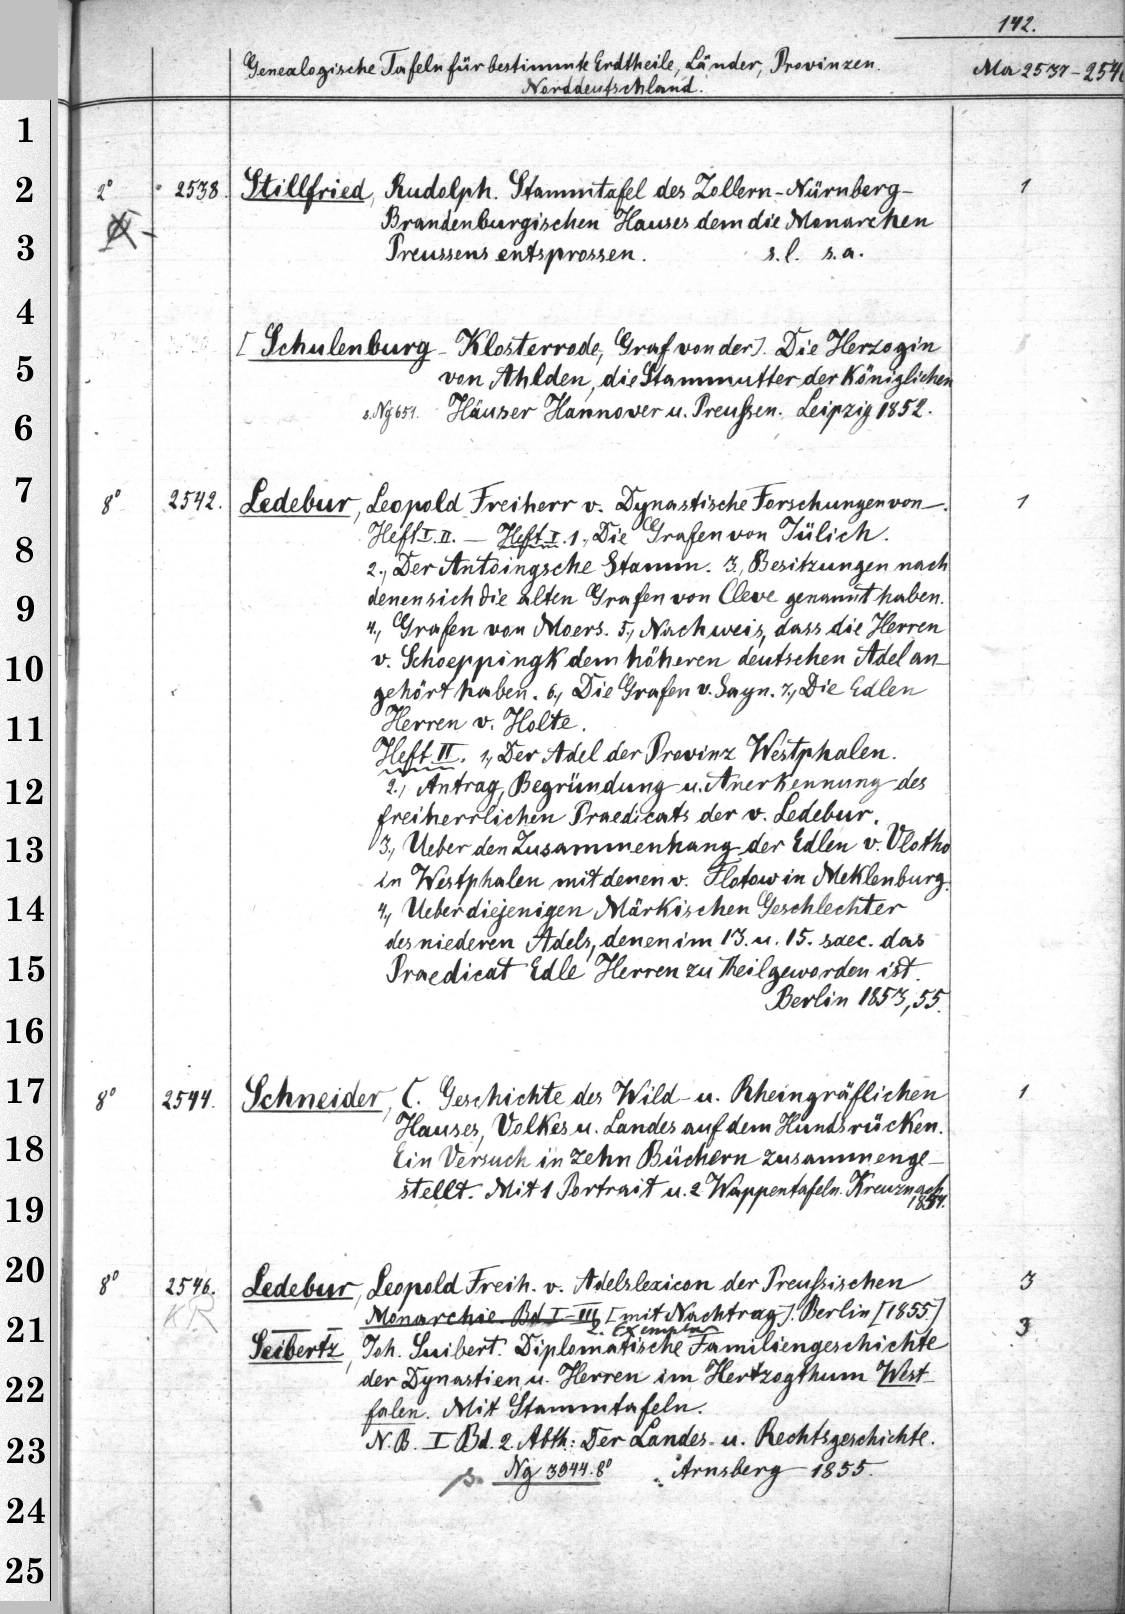 142.
Genealogische Tafeln für bestimmte Erdtheile, Länder, Provinzen. Ma 2537-254
Norddeutschland.
1
2 2° 2538. Stillfried, Rudolph. Stammtafel des Zollern-Nürnberg- 1
Brandenburgischen Hauses dem die Monarchen
3 Preussens entsprossen. s. l. s. a.
4
[Schulenburg - Klosterrode, Graf von der]. Die Herzogin
5 von Ahlden, die Stammutter der Königlichen
s. Ng 651. Häuser Hannover u. Preußen. Leipzig 1852.
6
7 8° 2542. Ledebur, Leopold Freiherr v. Dynastische Forschungen von-. 1
Heft I. II. — Heft I. 1., Die Grafen von Jülich.
8
2., Der Antoingsche Stamm. 3., Besitzungen nach
denen sich die alten Grafen von Cleve genannt haben.
9
4., Grafen von Moers. 5., Nachweis, dass die Herren
10 v. Schoeppingk dem höheren deutschen Adel an-
gehört haben. 6., Die Grafen v. Sayn. 7., Die Edlen
11 Herren v. Holte.
Heft II. 1., Der Adel der Provinz Westphalen.
12 2., Antrag, Begründung u. Anerkennung des
freiherrlichen Praedicats der v. Ledebur.
13 3., Ueber den Zusammenhang der Edlen v. Vlotho
in Westphalen mit denen v. Flotow in Meklenburg.
14 4., Ueber diejenigen Märkischen Geschlechter
des niederen Adels, denen im 13. u. 15. saec. das
15 Praedicat Edle Herren zu Theil geworden ist.
Berlin 1853, 55.
16
17 8° 2544. Schneider, C. Geschichte des Wild- u. Rheingräflichen 1
Hauses, Volkes u. Landes auf dem Hundsrücken.
18 Ein Versuch in zehn Büchern zusammenge-
stellt. Mit 1 Portrait u. 2 Wappentafeln. Kreuznach
19 1854.
20 8° 2546. Ledebur, Leopold Freih. v. Adelslexicon der Preußischen 3
KR Monarchie. Bd I-III [mit Nachtrag]. Berlin [1855.]
2. Exemplar 3
21 Seibertz, Joh. Suibert. Diplomatische Familiengeschichte
22 der Dynastien u. Herren im Hertzogthum West-
falen. Mit Stammtafeln.
23 N. B. I Bd. 2. Abth: Der Landes- u. Rechtsgeschichte.
s. Ng 3944. 8° Arnsberg 1855.
24
25